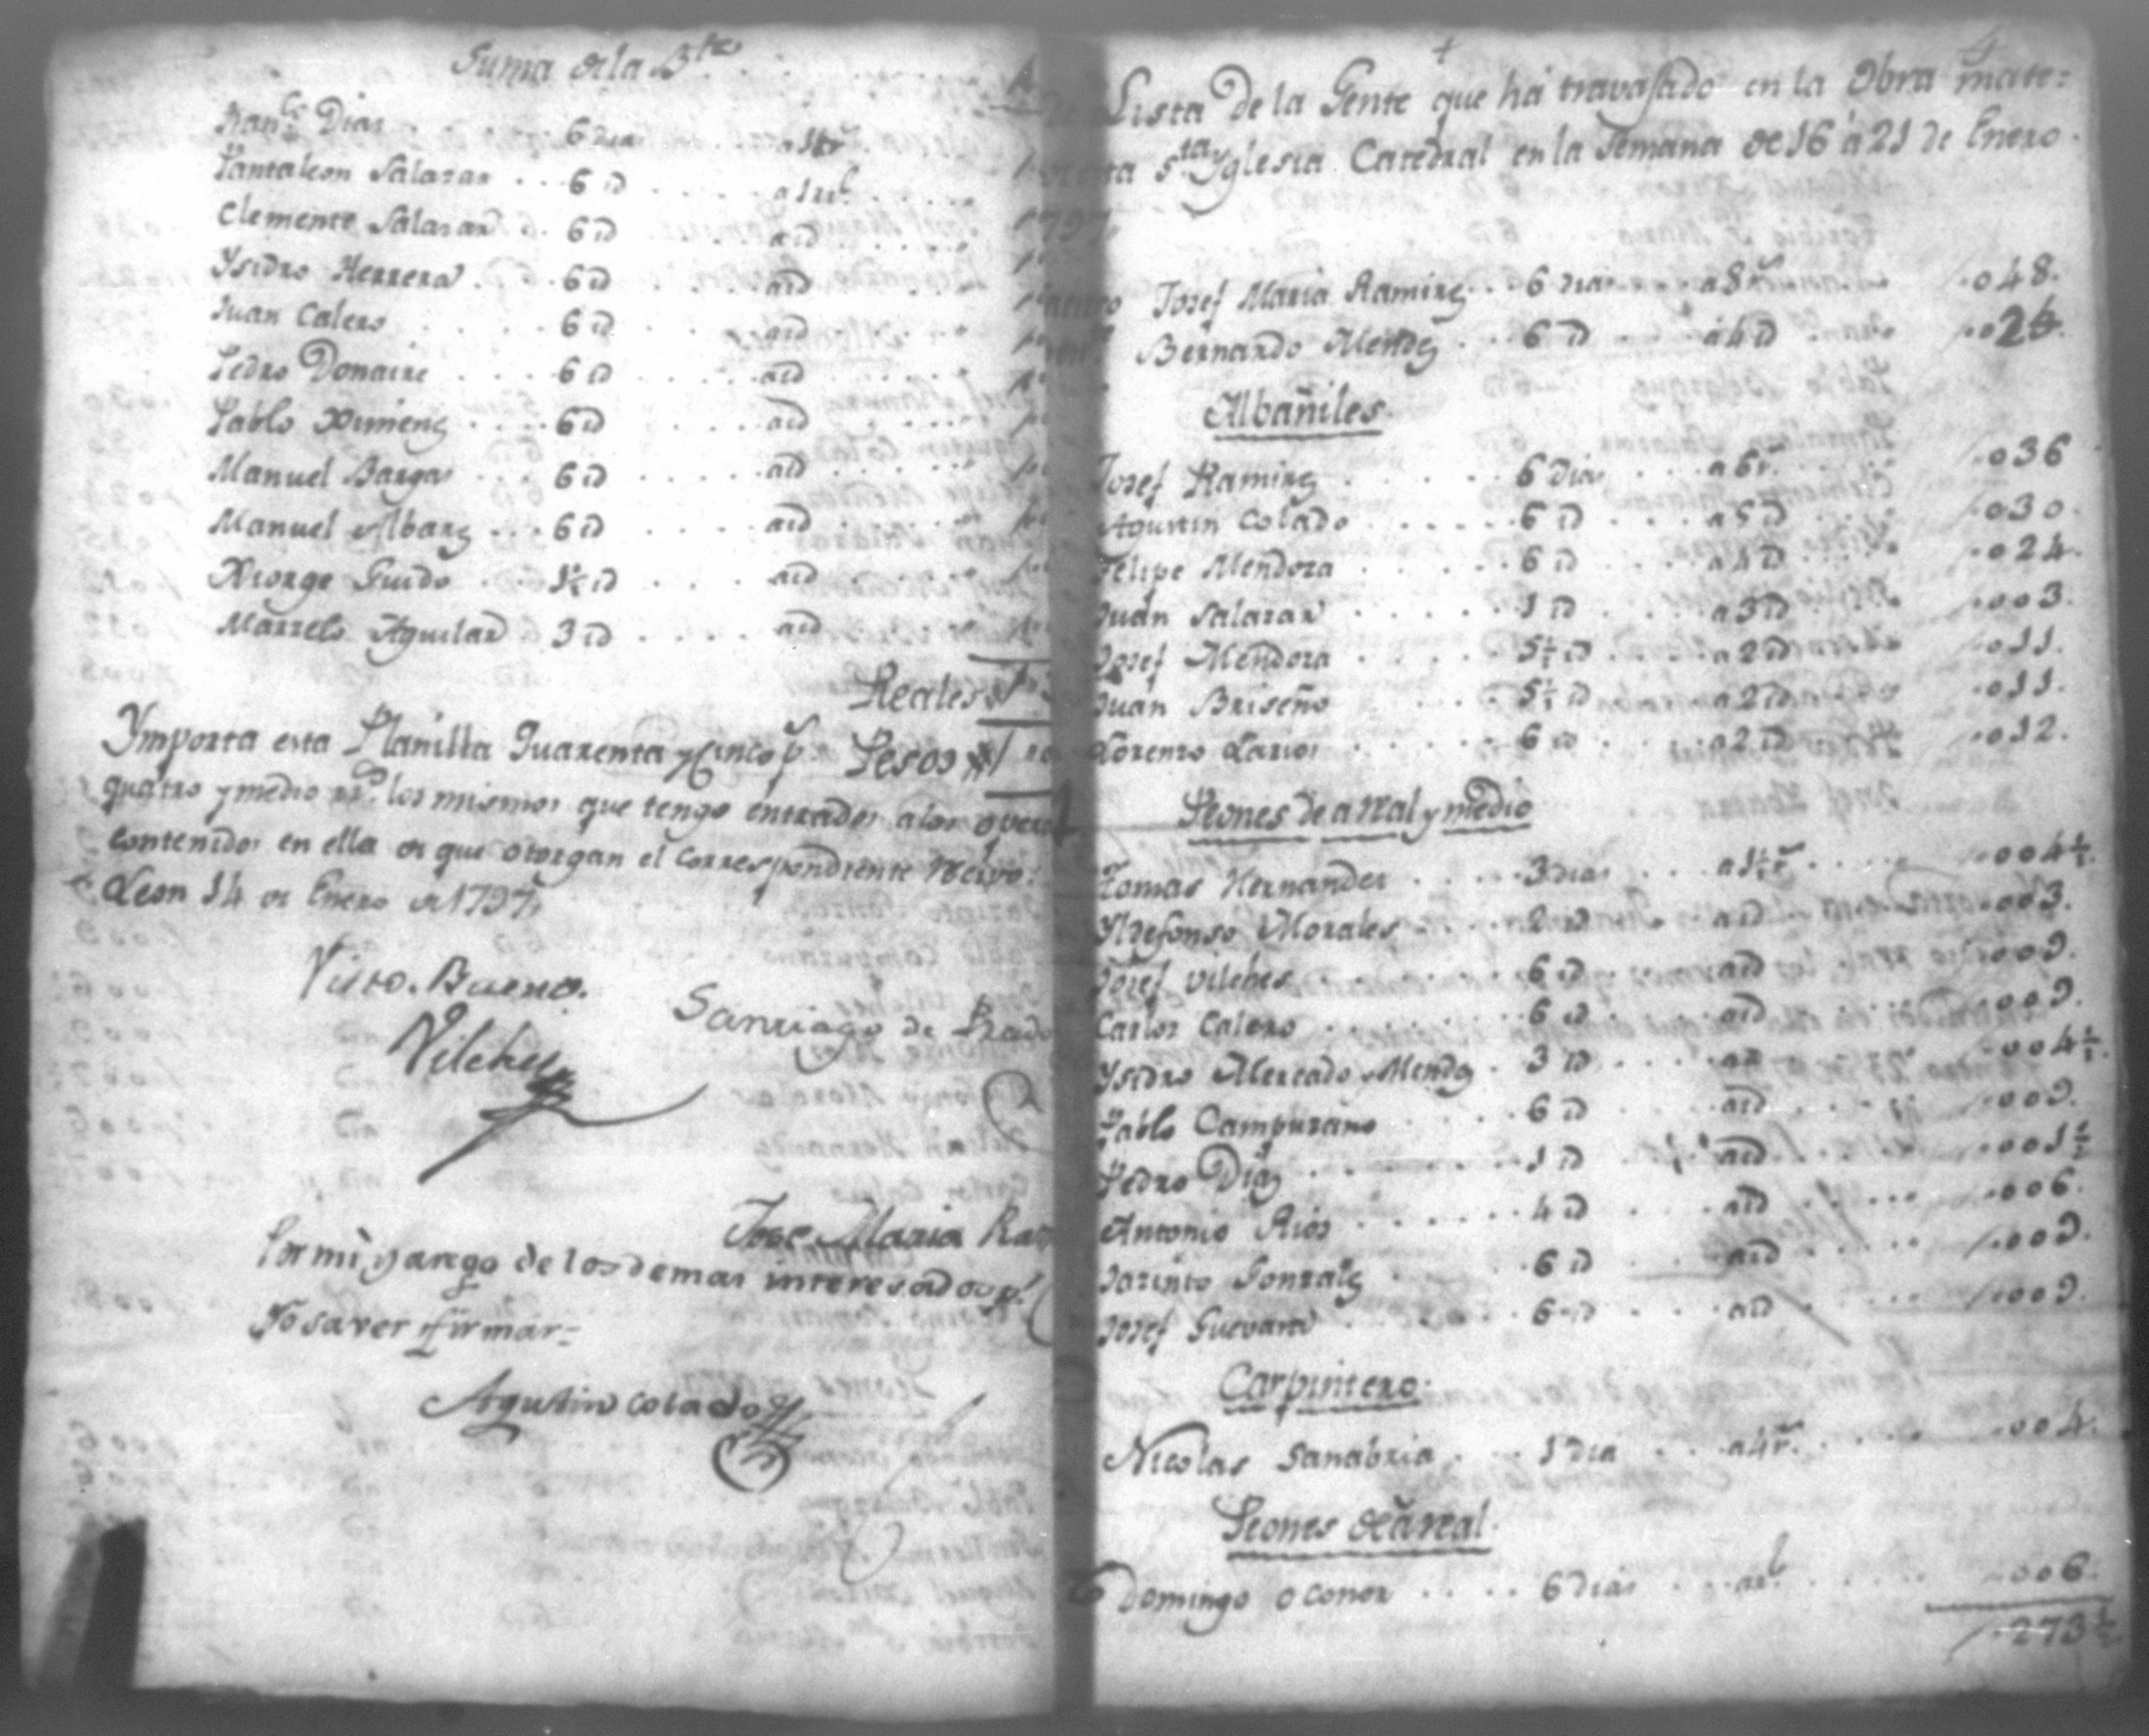 Suma de la B.ta
Fran.co Dias . . . 6 dias . . . a 1 rr.
Pantaleon Salazar . . . 6 id . . . . a 1 rr.l . . . .
Clemente Salazar . . 6 id . . . . a id . . . . .
Ysidro Herrera . . . 6 id . . . . a id . . . .
Juan Calero . . . . 6 id . . . . a id . . . .
Pedro Donaire . . . . 6 id . . . . a id . . . .
Pablo Ximenez . . . . 6 id . . . . a id . . . .
Manuel Bargas . . . 6 id . . . . a id . . . .
Manuel Albarez . . . 6 id . . . . a id . . . .
Xiorge Guido . . 1½ id . . . . a id . . . .
Marzelo Aguilar 3 id . . . . a id . . . .
Reales
Ymporta esta Planilla Quarenta y Cinco p.s Pesos
quatro y medio rr.s los mismos que tengo entrados a los
contenidos en ella de que otorgan el correspondiente Recivo.
Leon 14 de Enero de 1797,
Visto. Bueno.
Santiago de Prado
Vilches
Jose Maria
Por mi y a rego de los demas interesados p.r
No saver firmar=
Agustin Colado
4
Lista de la Gente que há travajado en la Obra mate=
S.ta Yglesia Catedral en la Semana de 16 á 21 de Enero.
1797.
Josef Maria Ramirez . . 6 dias . . . . a 8 rr.s . . . . . 048.
Bernardo Mendez . . 6 id . . . a 4 id . . . . . 024.
Albañiles.
Josef Ramirez . . . . . 6 Dias . . . a 6 r.s . . . . 036
Agustin Colado . . . . . 6 id . . . . a 5 id . . . . 030.
Felipe Mendoza . . . . . 6 id . . . . a 4 id . . . . 024.
Juan Salazar . . . . . 1 id . . . . a 3 id . . . . 003.
Josef Mendoza . . . . 5½ id . . . . a 2 id . . . . 011.
Juan Briseño . . . . 5½ id . . . . a 2 id . . . . 011.
Lorenzo Larios . . . . 6 id . . . . a 2 id . . . . 012.
Peones de a rral y medio
Tomas Hernandez . . . . 3 dias . . . a 1½ r.s . . . . . 004½.
Yldefonso Morales . . . . 2 id . . . a id . . . . 003.
Josef Vilches . . . . . 6 id . . . . a id . . . . 009.
Carlos Calero . . . . . 6 id . . . . a id . . . . 009.
Ysidro Mercado y Mendez . 3 id . . . . a id . . . . 004½.
Pablo Campuzano . . . 6 id . . . . a id . . . . 009.
Pedro Diaz . . . . . 1 id . . . . a id . . . . 001½
Antonio Rios . . . . . 4 id . . . . a id . . . . 006.
Jazinto Gonzalez . . . 6 id . . . . a id . . . . 009.
Josef Guevara . . . . 6 id . . . . a id . . . . 009.
Carpintero.
Nicolas Sanabria . . . 1 Dia . . . a 4 r.s . . . . 004.
Peones de á real.
Domingo oconor . . . . . 6 Dias . . . a rr.l . . . . . 006.
273½